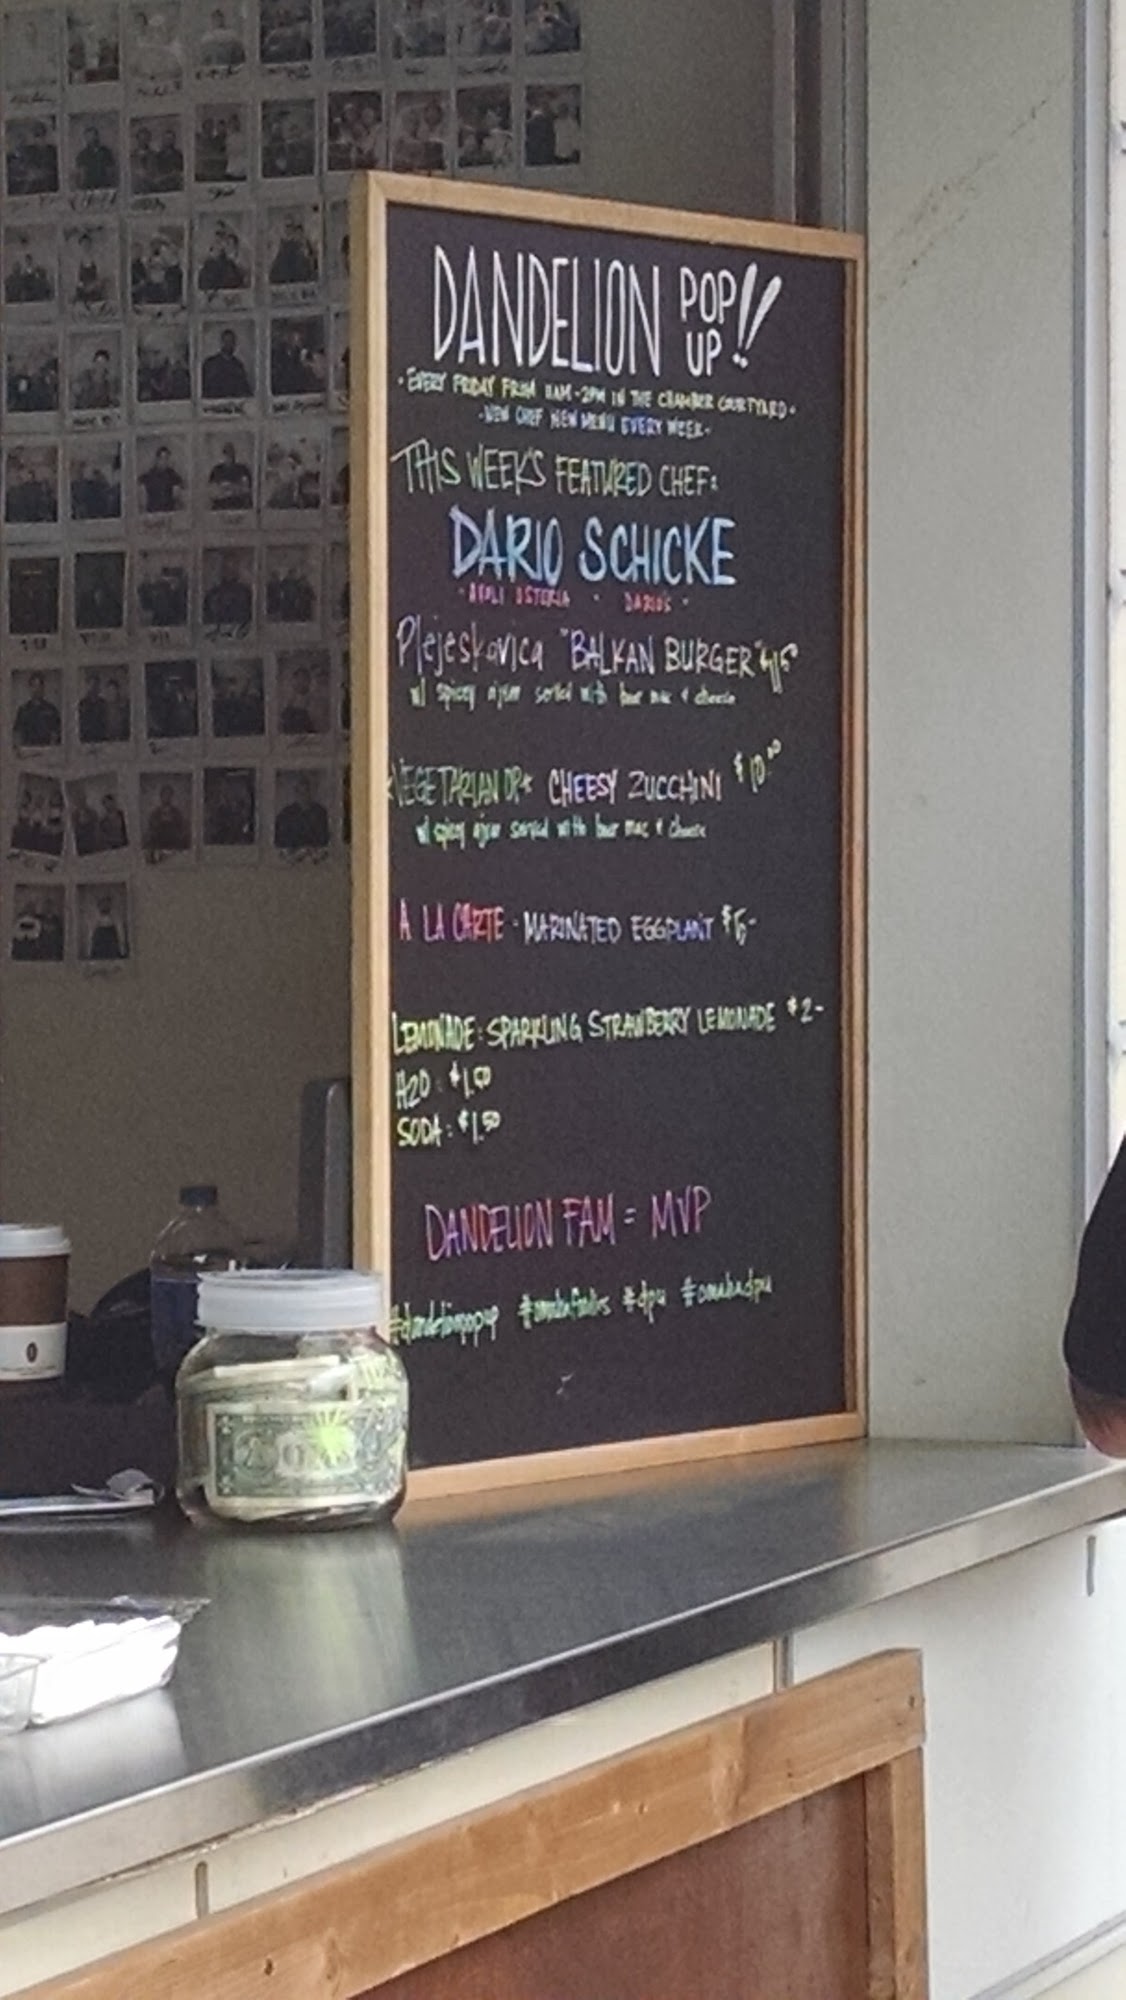 DANDELION POP UP!!
· EVERY FRIDAY FROM 11AM - 2PM IN THE CHAMBER COURTYARD ·
· NEW CHEF NEW MENU EVERY WEEK ·
THIS WEEK'S FEATURED CHEF:
DARIO SCHICKE
· AVOLI OSTERIA · DARIO'S ·
Plejeskavica "BALKAN BURGER" $15
w/ spicy ajvar served with bur mac & cheese
*VEGETARIAN OP* CHEESY ZUCCHINI $10.00
w/ spicy ajvar served with bur mac & cheese
A LA CARTE · MARINATED EGGPLANT $5-
LEMONADE: SPARKLING STRAWBERRY LEMONADE $2-
H2O: $1.50
SODA: $1.50
DANDELION FAM = MVP
#dandelionpopup #omahafoodies #dpu #omahadpu